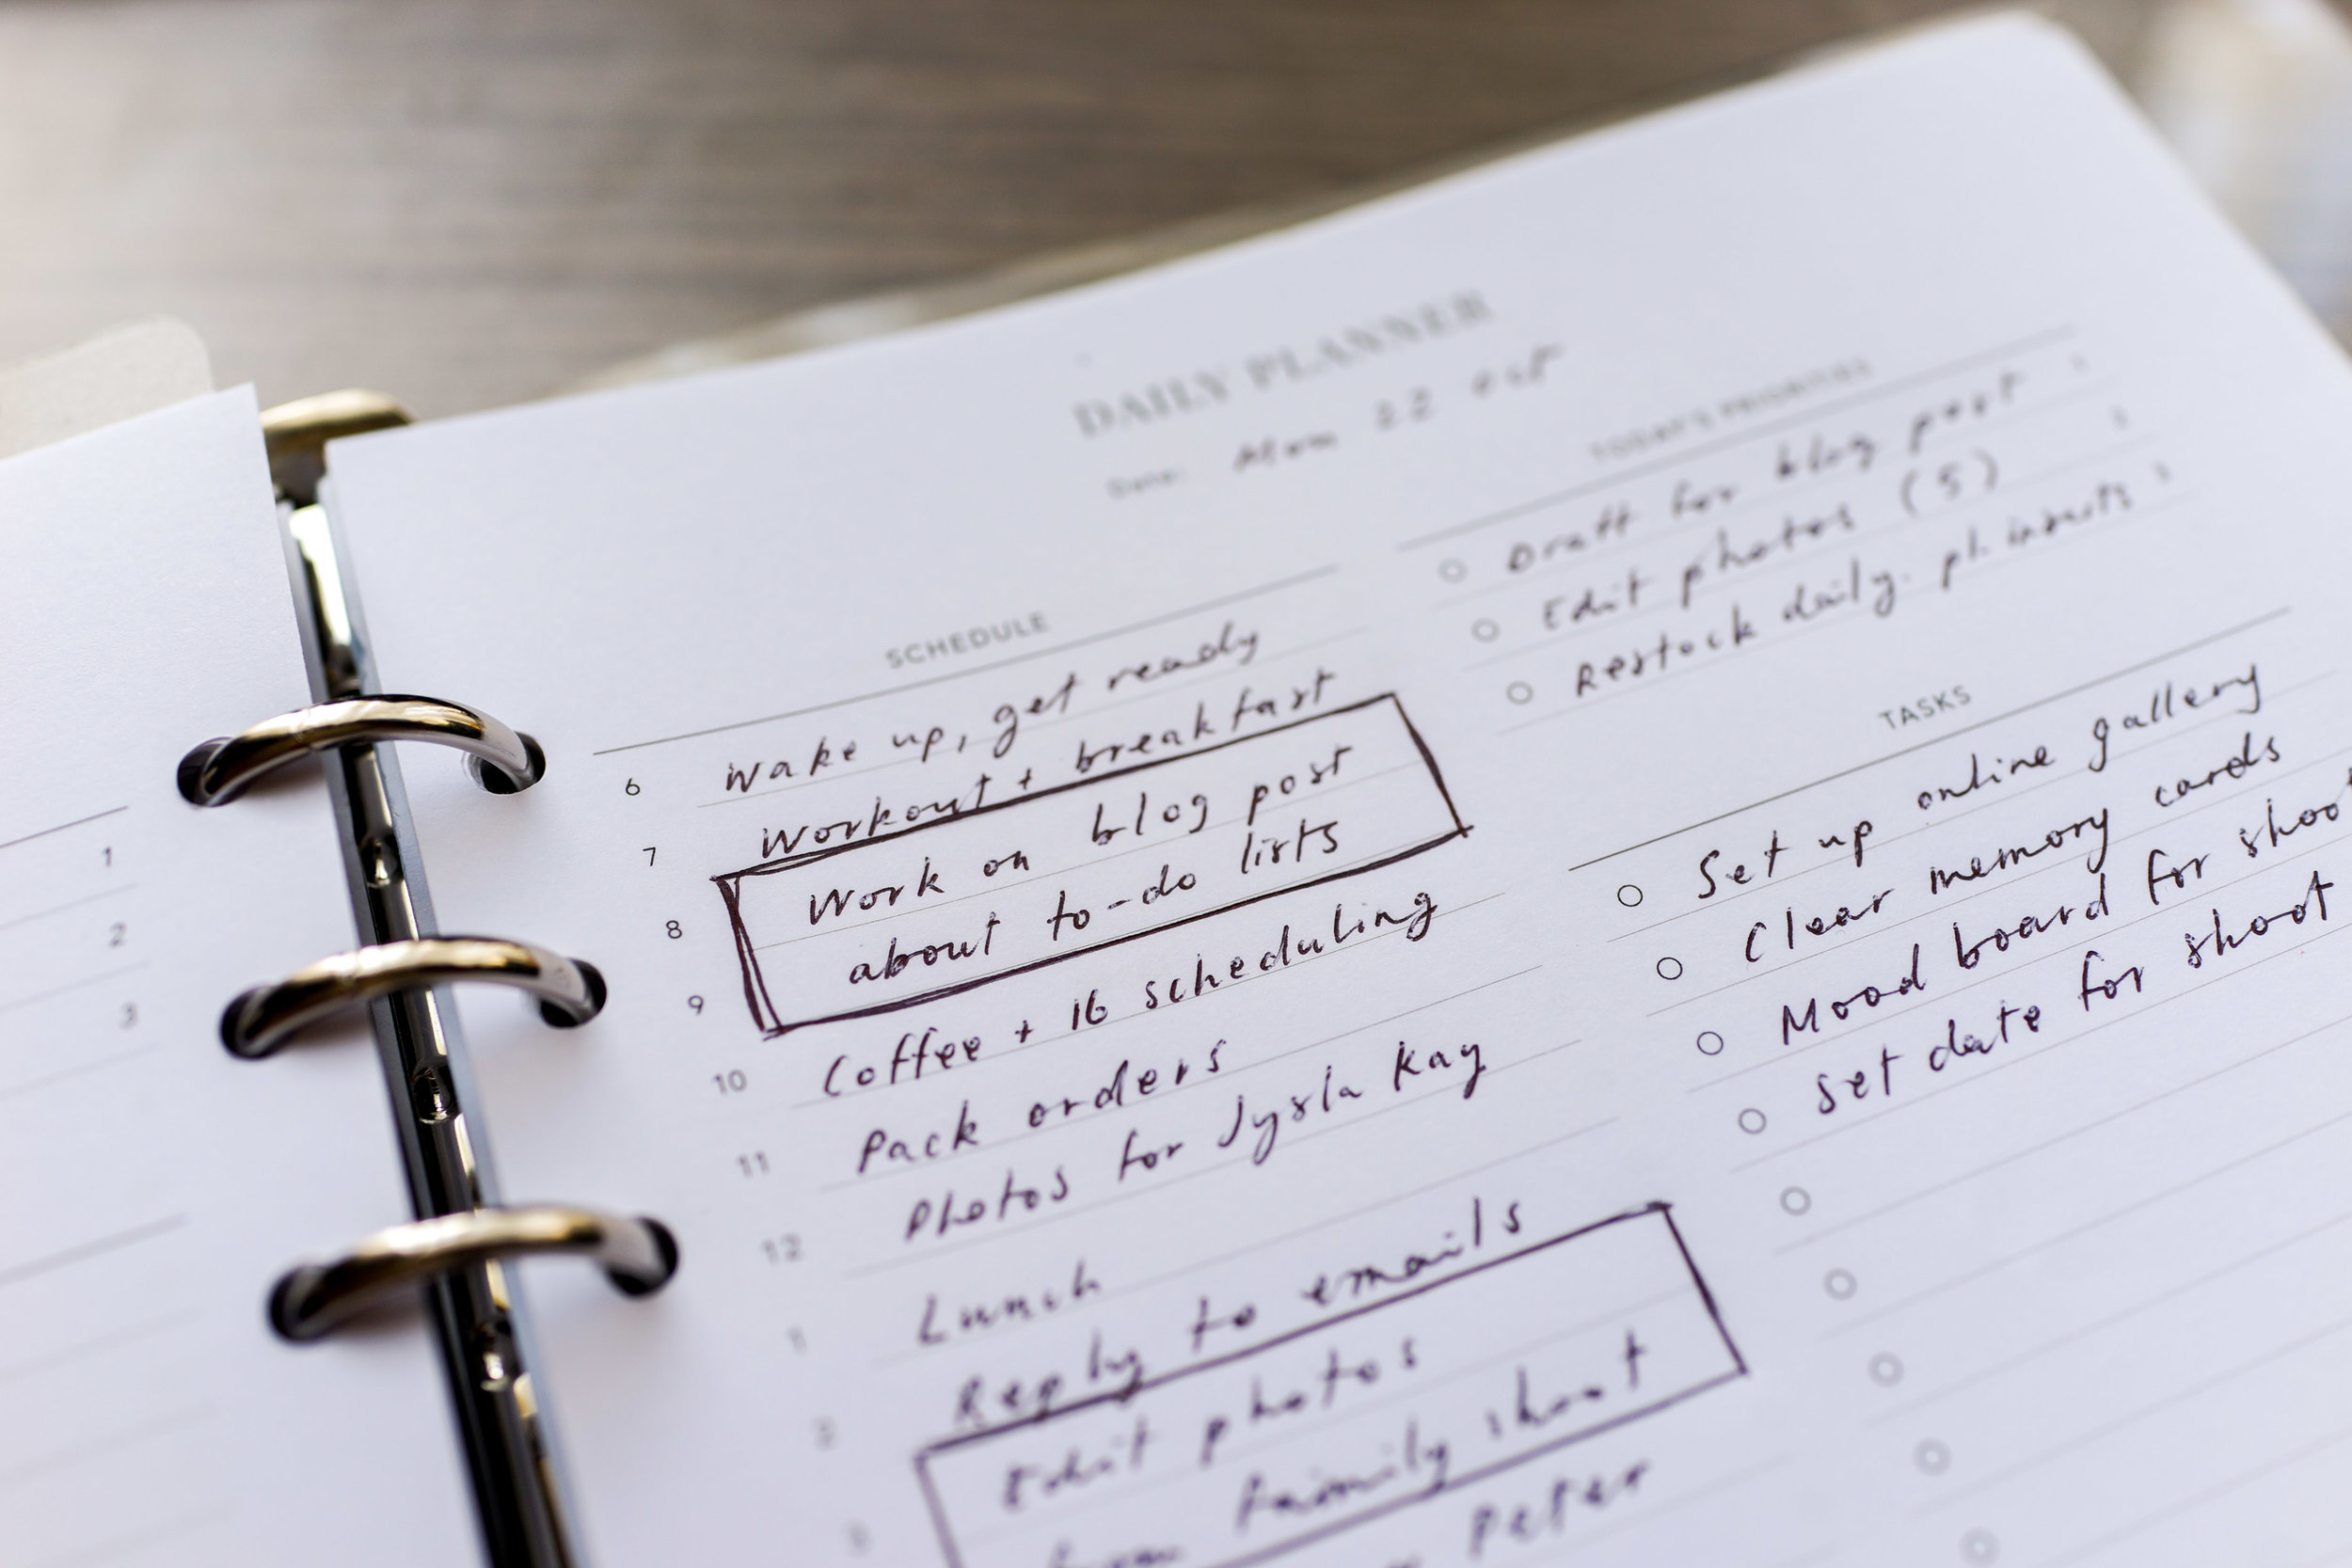 1
2
3
DAILY PLANNER
Date: Mon 22 oct
SCHEDULE
6 Wake up, get ready
7 Workout + breakfast
8 Work on blog post
9 about to-do lists
10 Coffee + IG scheduling
11 Pack orders
12 Photos for Jysla Kay
1 Lunch
2 Reply to emails
3 Edit photos
from family shoot
Peter
TODAY'S PRIORITIES
Draft for blog post 1
Edit photos (5) 2
Restock daily. pl. inserts 3
TASKS
Set up online gallery
Clear memory cards
Mood board for shoot
Set date for shoot